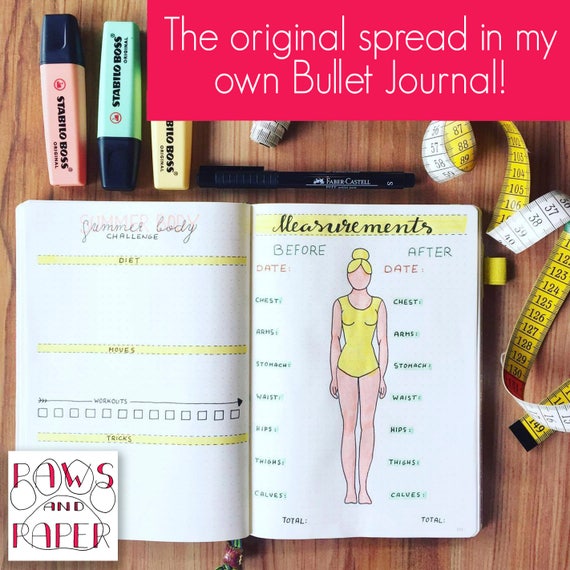 The original spread in my
own Bullet Journal!
STABILO BOSS
ORIGINAL
STABILO BOSS
ORIGINAL
BOSS
ORIGINAL
FABER-CASTELL
S
SUMMER BODY
Summer body
CHALLENGE
DIET
MOVES
WORKOUTS
TRICKS
Measurements
BEFORE
AFTER
DATE:
DATE:
CHEST:
CHEST:
ARMS:
ARMS:
STOMACH:
STOMACH:
WAIST:
WAIST:
HIPS:
HIPS:
THIGHS:
THIGHS:
CALVES:
CALVES:
TOTAL:
TOTAL:
PAWS
AND
PAPER